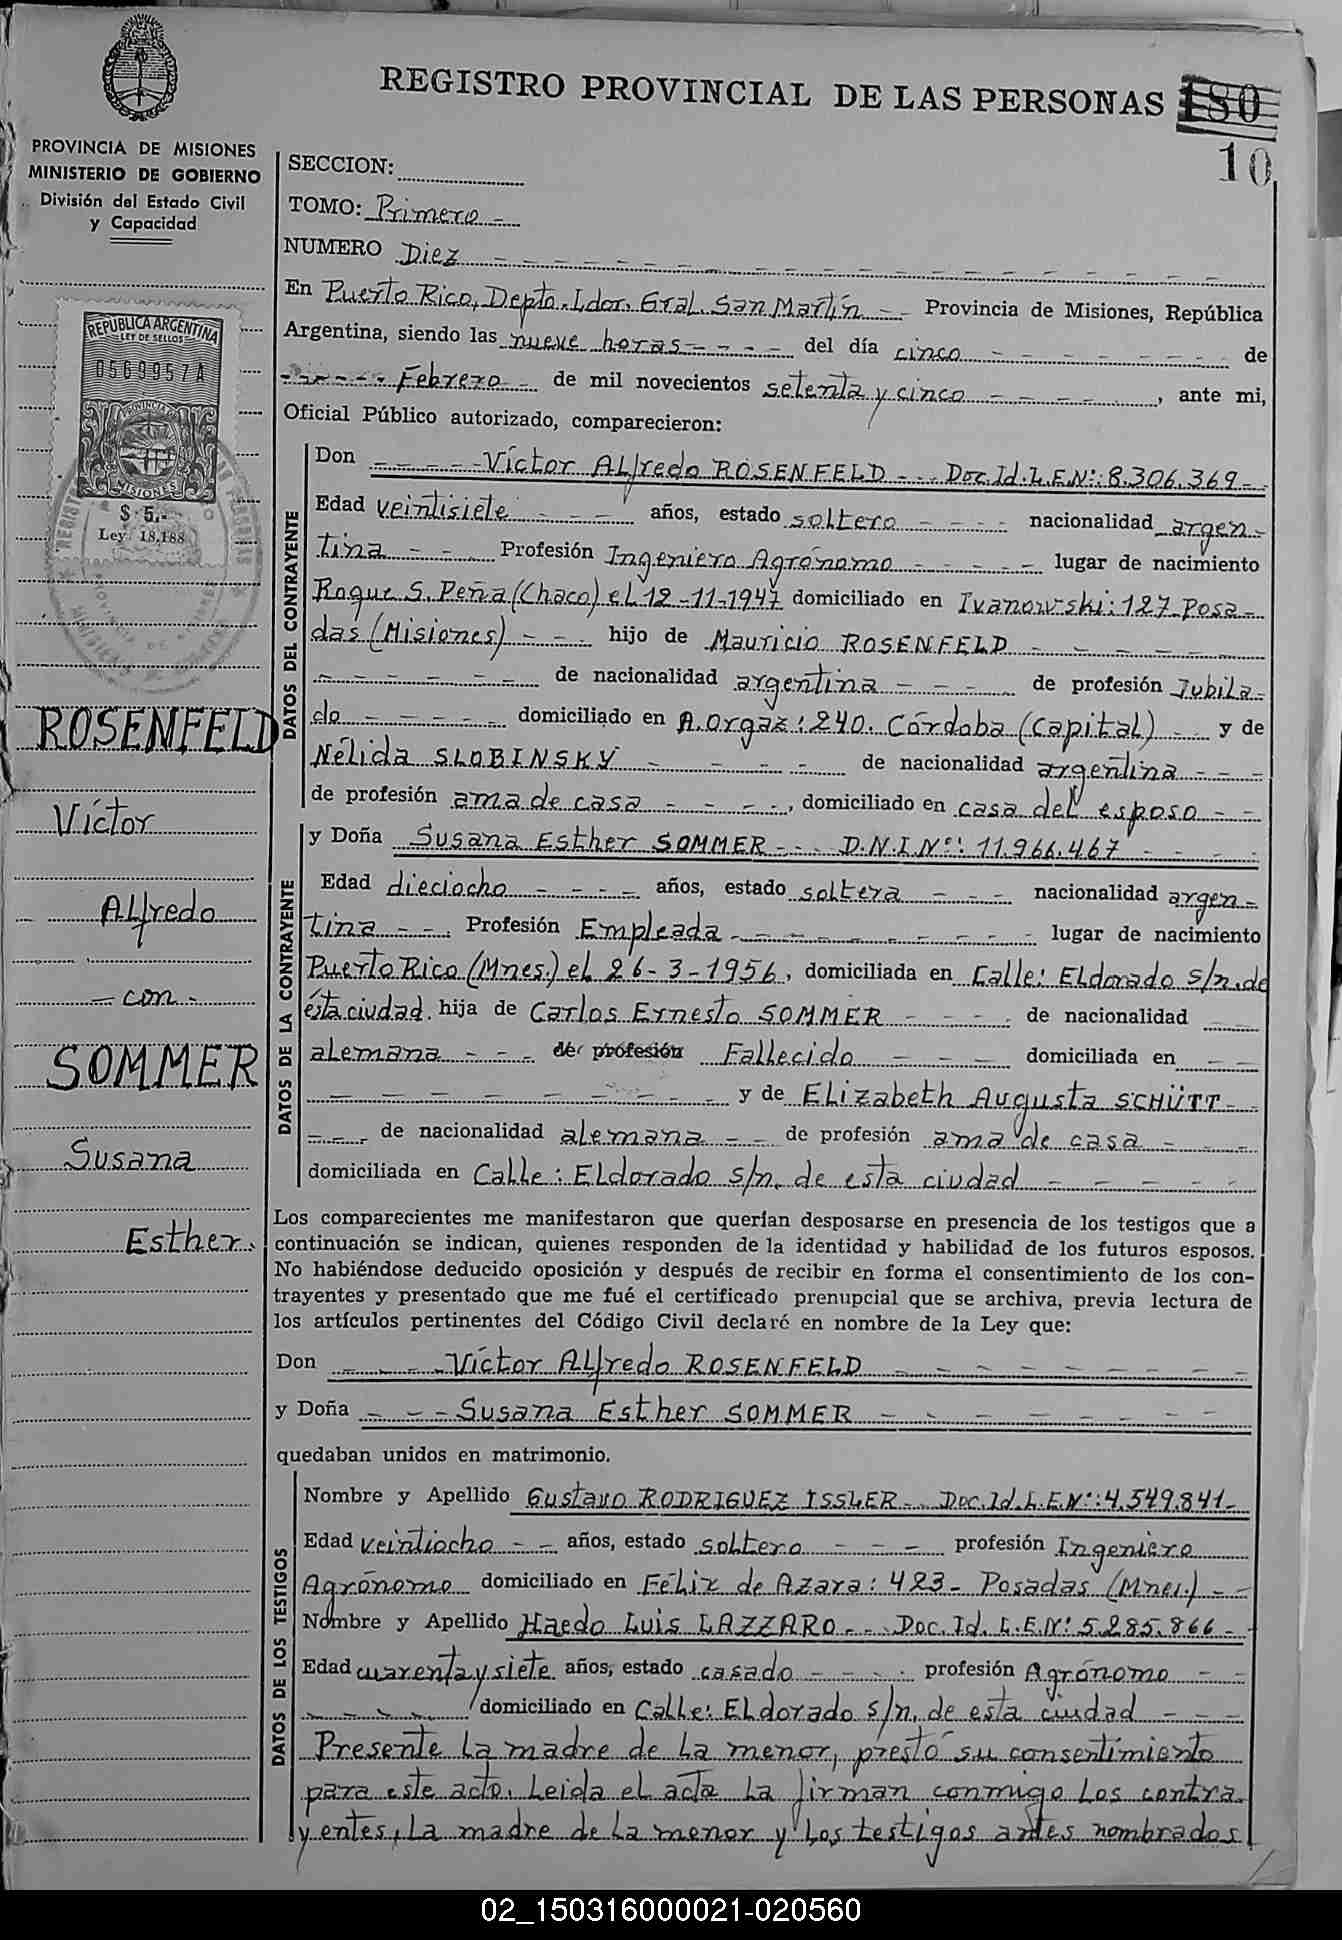 REGISTRO PROVINCIAL DE LAS PERSONAS 180
10
PROVINCIA DE MISIONES
MINISTERIO DE GOBIERNO
División del Estado Civil
y Capacidad
REPUBLICA ARGENTINA
LEY DE SELLOS
0569957A
PROVINCIA DE
MISIONES
$ 5.-
Ley 18,188
ROSENFELD
Víctor
Alfredo
- con -
SOMMER
Susana
Esther.
SECCION:
TOMO: Primero -
NUMERO Diez - - - - - - - - - - - - - - - - - - - -
En Puerto Rico, Depto. Ldor. Gral. San Martín - - Provincia de Misiones, República
Argentina, siendo las nueve horas - - - - del día cinco - - - - - - - de
- - - - - Febrero - de mil novecientos setenta y cinco - - - - , ante mi,
Oficial Público autorizado, comparecieron:
DATOS DEL CONTRAYENTE
Don - - - - - Víctor Alfredo ROSENFELD - - - Doc. Id. L.E.Nº: 8.306.369 -
Edad veintisiete - - - años, estado soltero - - - - nacionalidad argen-
tina - - - Profesión Ingeniero Agrónomo - - - - - lugar de nacimiento
Roque S. Peña (Chaco) el 12-11-1947 domiciliado en Ivanowski: 127 Posa-
das (Misiones) - - - hijo de Mauricio ROSENFELD - - - - - -
- - - - - - de nacionalidad argentina - - - - de profesión Jubila-
do - - - - - domiciliado en A. Orgaz: 240. Córdoba (Capital) - - y de
Nélida SLOBINSKY - - - - - de nacionalidad argentina - - -
de profesión ama de casa - - - - , domiciliado en casa del esposo - -
DATOS DE LA CONTRAYENTE
y Doña Susana Esther SOMMER - - - D.N.I.Nº: 11.966.467 - - - -
Edad dieciocho - - - - años, estado soltera - - - nacionalidad argen-
tina - - . Profesión Empleada - - - - - - - - - lugar de nacimiento
Puerto Rico (Mnes.) el 26-3-1956, domiciliada en Calle: Eldorado s/n. de
ésta ciudad. hija de Carlos Ernesto SOMMER - - - - de nacionalidad - -
alemana - - - de profesión Fallecido - - - domiciliada en - -
- - - - - - - - - y de Elizabeth Augusta SCHÜTT - -
- - - de nacionalidad alemana - - de profesión ama de casa - - -
domiciliada en Calle: Eldorado s/n. de esta ciudad - - - - - -
Los comparecientes me manifestaron que querían desposarse en presencia de los testigos que a
continuación se indican, quienes responden de la identidad y habilidad de los futuros esposos.
No habiéndose deducido oposición y después de recibir en forma el consentimiento de los con-
trayentes y presentado que me fué el certificado prenupcial que se archiva, previa lectura de
los artículos pertinentes del Código Civil declaré en nombre de la Ley que:
Don - - - - Víctor Alfredo ROSENFELD - - - - - - - - -
y Doña - - - Susana Esther SOMMER - - - - - - - -
quedaban unidos en matrimonio.
DATOS DE LOS TESTIGOS
Nombre y Apellido Gustavo RODRIGUEZ ISSLER - - Doc. Id. L.E.Nº: 4.549.841 -
Edad veintiocho - - años, estado soltero - - - profesión Ingeniero
Agrónomo domiciliado en Félix de Azara: 423 - Posadas (Mnes.) - -
Nombre y Apellido Haedo Luis LAZZARO - - . Doc. Id. L.E.Nº 5.285.866 -
Edad cuarenta y siete años, estado casado - - - - profesión Agrónomo - -
- - - - - domiciliado en Calle: Eldorado s/n, de esta ciudad - - -
Presente la madre de la menor, prestó su consentimiento
para este acto. Leida el acta la firman conmigo los contra-
yentes, la madre de la menor y los testigos antes nombrados
02_150316000021-020560